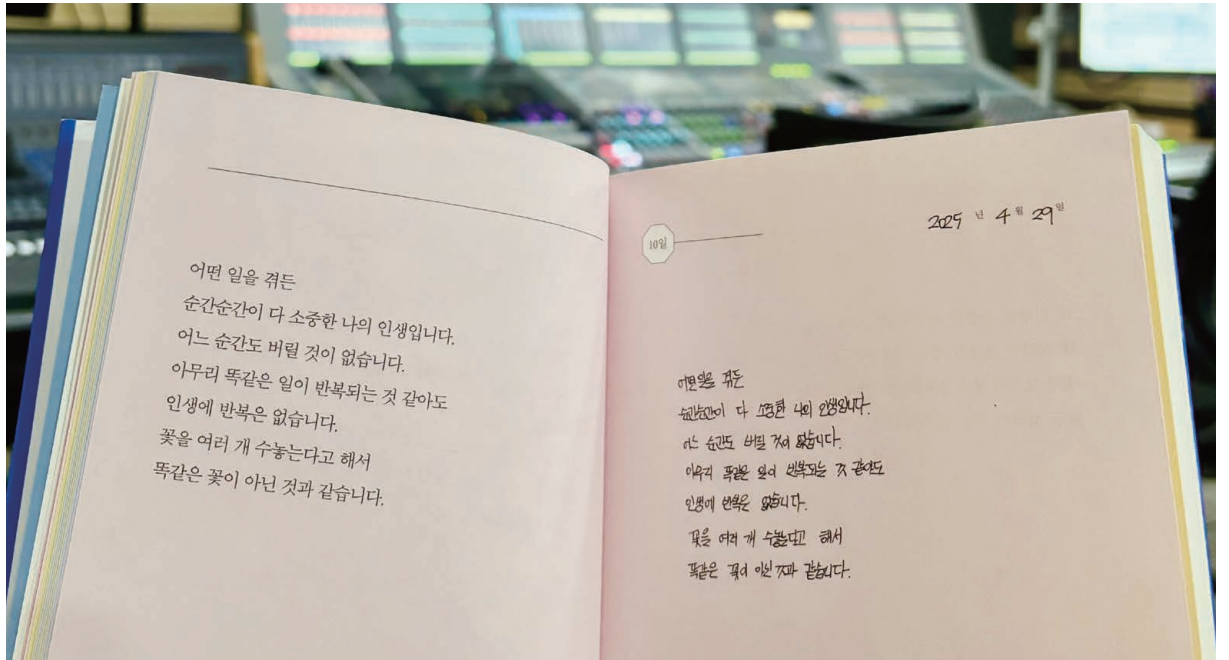 어떤 일을 겪든
순간순간이 다 소중한 나의 인생입니다.
어느 순간도 버릴 것이 없습니다.
아무리 똑같은 일이 반복되는 것 같아도
인생에 반복은 없습니다.
꽃을 여러 개 수놓는다고 해서
똑같은 꽃이 아닌 것과 같습니다.
10일
2025 년 4 월 29 일
어떤일을 겪든
순간순간이 다 소중한 나의 인생입니다.
어느 순간도 버릴 것이 없습니다.
아무리 똑같은 일이 반복되는 것 같아도
인생에 반복은 없습니다.
꽃을 여러 개 수놓는다고 해서
똑같은 꽃이 아닌 것과 같습니다.